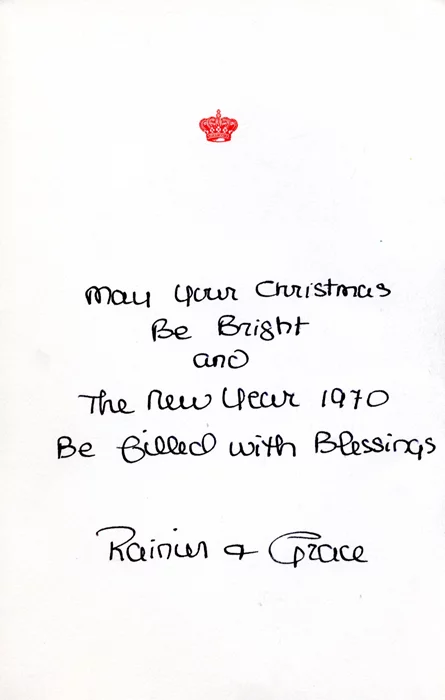 May Your Christmas
Be Bright
and
The New Year 1970
Be filled with Blessings
Rainier & Grace